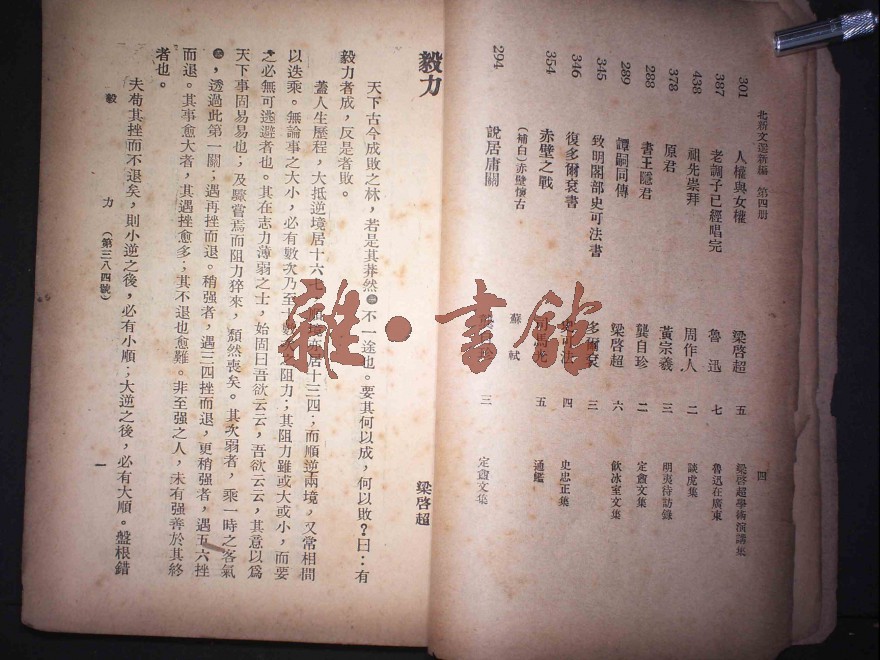 北新文選新編 第四册
四
301 人權與女權 梁啓超 五 梁啓超學術演講集
387 老調子已經唱完 魯迅 七 魯迅在廣東
438 祖先崇拜 周作人 二 談虎集
378 原君 黃宗羲 三 明夷待訪錄
288 書王隱君 龔自珍 二 定盦文集
289 譚嗣同傳 梁啓超 六 飲冰室文集
345 致明閣部史可法書 多爾袞 三
346 復多爾袞書 史可法 四 史忠正集
354 赤壁之戰 司馬光 五 通鑑
(補白)赤壁懷古 蘇軾
294 說居庸關 龔自珍 三 定盦文集
毅力
梁啓超
天下古今成敗之林,若是其莽然不一途也。要其何以成,何以敗?曰:有
毅力者成,反是者敗。
蓋人生歷程,大抵逆境居十六七,順境亦居十三四;而順逆兩境,又常相間
以迭乘。無論事之大小,必有數次乃至十數次之阻力;其阻力雖或大或小,而要
之必無可逃避者也。其在志力薄弱之士,始固曰吾欲云云,吾欲云云,其意以爲
天下事固易易也;及驟嘗焉而阻力猝來,頹然喪矣。其次弱者,乘一時之客氣
,透過此第一關;遇再挫而退。稍强者,遇三四挫而退,更稍强者,遇五六挫
而退。其事愈大者,其遇挫愈多;其不退也愈難。非至强之人,未有强善於其終
者也。
夫苟其挫而不退矣,則小逆之後,必有小順;大逆之後,必有大順。盤根錯
毅 力 (第三八四號) 一
雜·書館